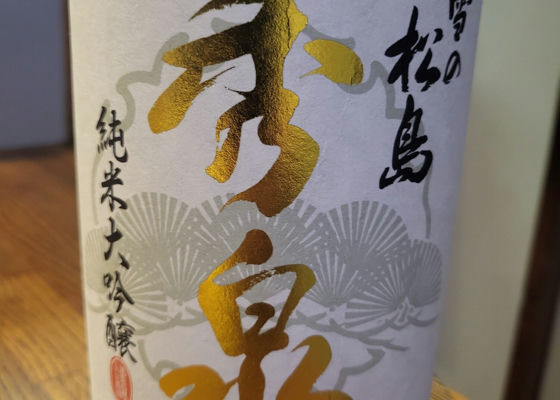 雪の松島
秀泉
純米大吟醸